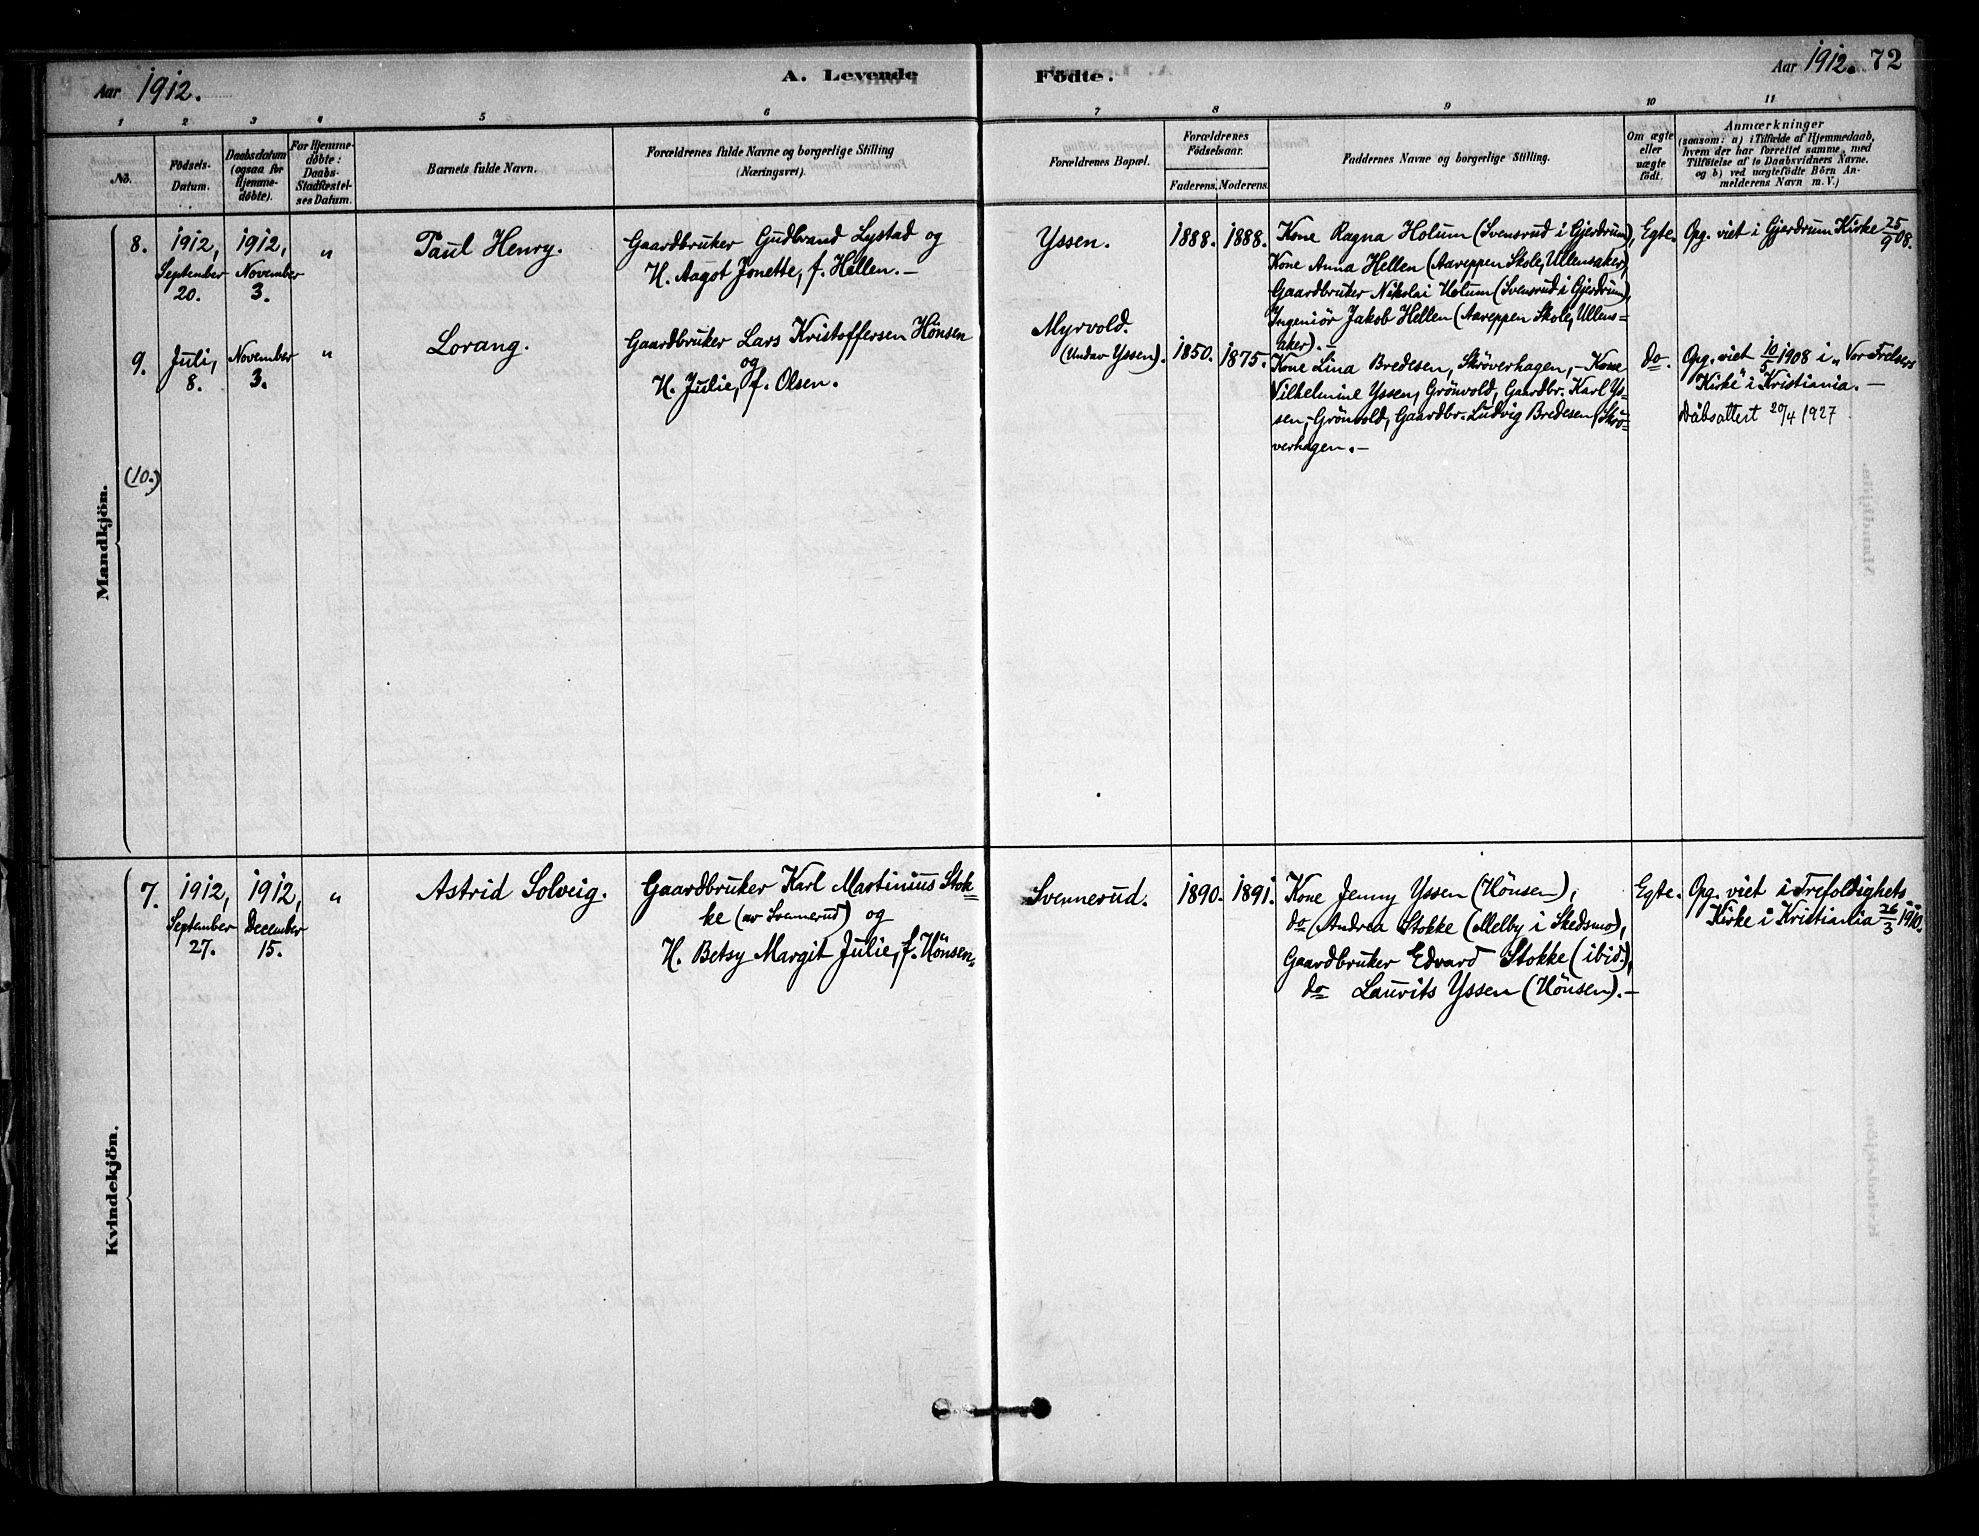 Aar 1912.
A. Levende
Födte.
Aar 1912. 72
1 2 3 4 5 6 7 8 9 10 11
No.
Födsels-
Datum.
Daabsdatum
(ogsaa for
Hjemme-
döbte).
For Hjemme-
döbte:
Daabs-
Stadfæstel-
ses Datum.
Barnets fulde Navn.
Forældrenes fulde Navne og borgerlige Stilling
(Næringsvei).
Forældrenes Bopæl.
Forældrenes
Födselsaar.
Faderens. Moderens.
Faddernes Navne og borgerlige Stilling.
Om ægte
eller
uægte
födt.
Anmærkninger
(saasom: a) i Tilfælde af Hjemmedaab,
hvem der har forrettet samme, med
Tilföielse af to Daabsvidners Navne.
og b) ved uægtefödte Börn An-
melderens Navn m. V.)
Mandkjön.
8.
1912,
September
20.
1912,
November
3.
"
Paul Henry.
Gaardbruker Gudbrand Lystad og
H. Aagot Jonette, f. Hellen. —
Yssen.
1888. 1888.
Kone Ragna Holum (Svensrud i Gjerdrum),
Kone Anna Hellen (Aareppen Skole, Ullensaker),
Gaardbruker Nikolai Holum (Svensrud i Gjerdrum),
Ingeniör Jakob Hellen (Aareppen Skole, Ullens=
aker). —
Egte.
Opg. viet i Gjerdrum Kirke 25/9 08.
9.
Juli,
8.
November
3.
"
Lorang.
Gaardbruker Lars Kristoffersen Hönsen
og
H. Julie, f. Olsen.
Myrvold.
(Undav Yssen).
1850. 1875.
Kone Lina Bredesen, Skröverhagen, — Kone
Vilhelmine Yssen, Grönvold, Gaardbr. Karl Ys=
sen, Grönvold, Gaardbr. Ludvig Bredesen (Skrö=
verhagen. —
do.
Opg. viet 10/5 1908 i „Vor Frelsers
Kirke" i Kristiania. —
Dåbsattest 20/4 1927
(10.)
Kvindekjön.
7.
1912,
September
27.
1912,
December
15.
"
Astrid Solveig.
Gaardbruker Karl Martinius Stok=
ke (av Svennerud) og
H. Betsy Margit Julie, f. Hönsen.
Svennerud.
1890. 1891.
Kone Jenny Yssen (Hönsen),
do (Andrea Stokke (Melby i Skedsmo),
Gaardbruker Edvard Stokke (ibid.),
do Laurits Yssen (Hönsen). —
Egte.
Opg. viet i Trefoldighets=
Kirke i Kristiania 26/3 1910.